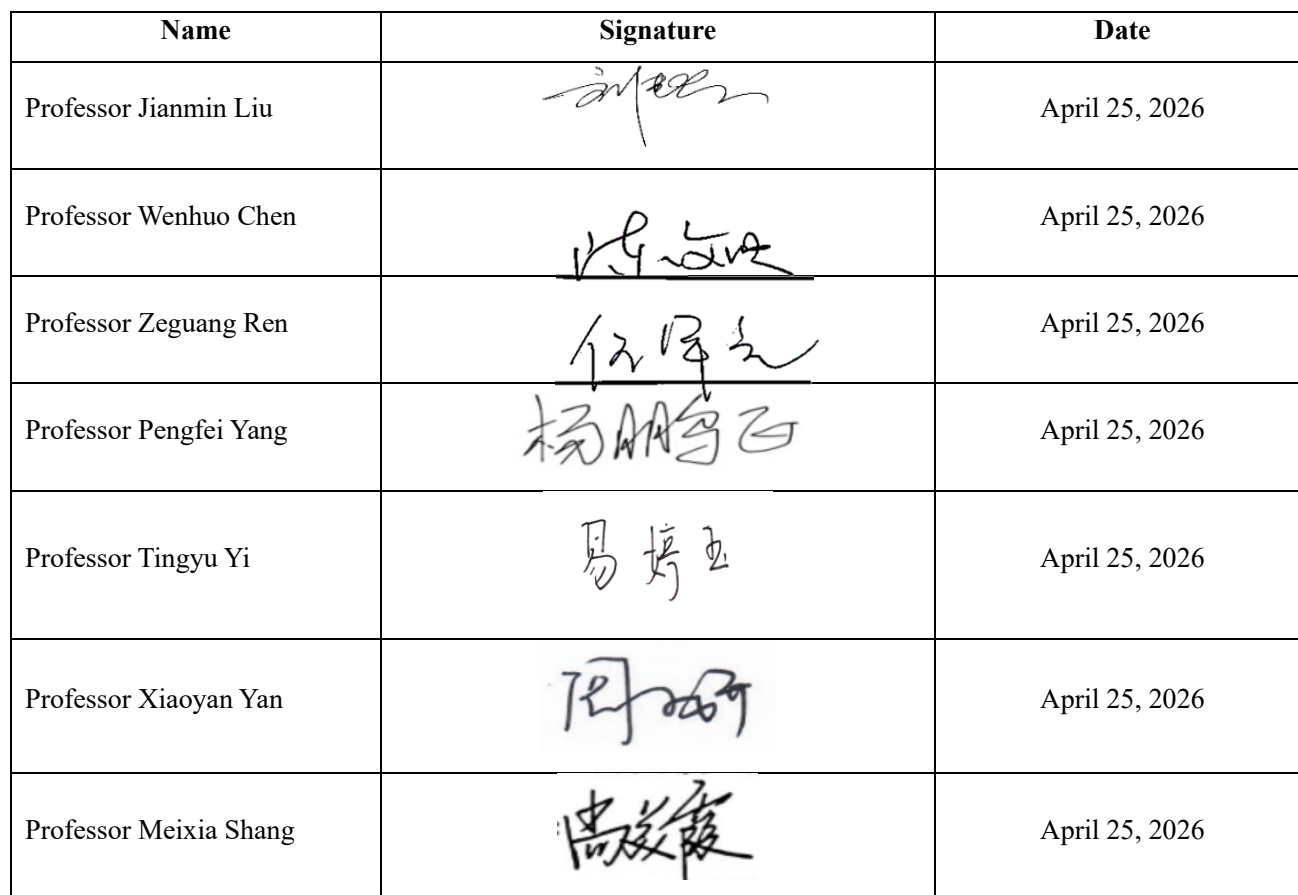 Name Signature Date
Professor Jianmin Liu April 25, 2026
Professor Wenhuo Chen 陈文伙 April 25, 2026
Professor Zeguang Ren 任泽光 April 25, 2026
Professor Pengfei Yang 杨鹏飞 April 25, 2026
Professor Tingyu Yi 易婷玉 April 25, 2026
Professor Xiaoyan Yan April 25, 2026
Professor Meixia Shang 尚美霞 April 25, 2026